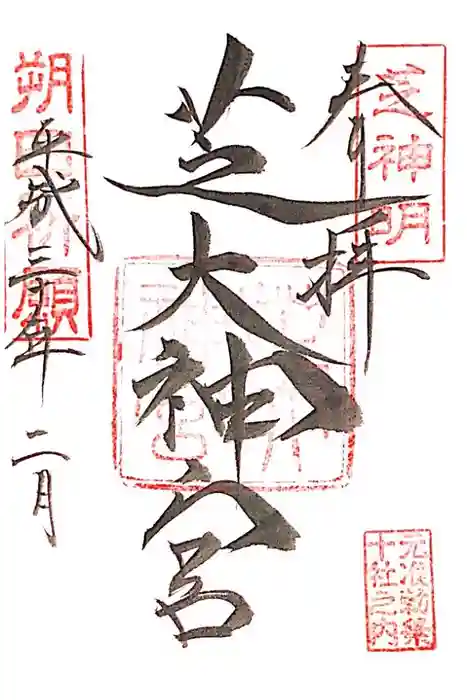 奉拝
芝神明
芝大神宮
朔日祈願
平成三十年
二月
元准勅祭
十社之内